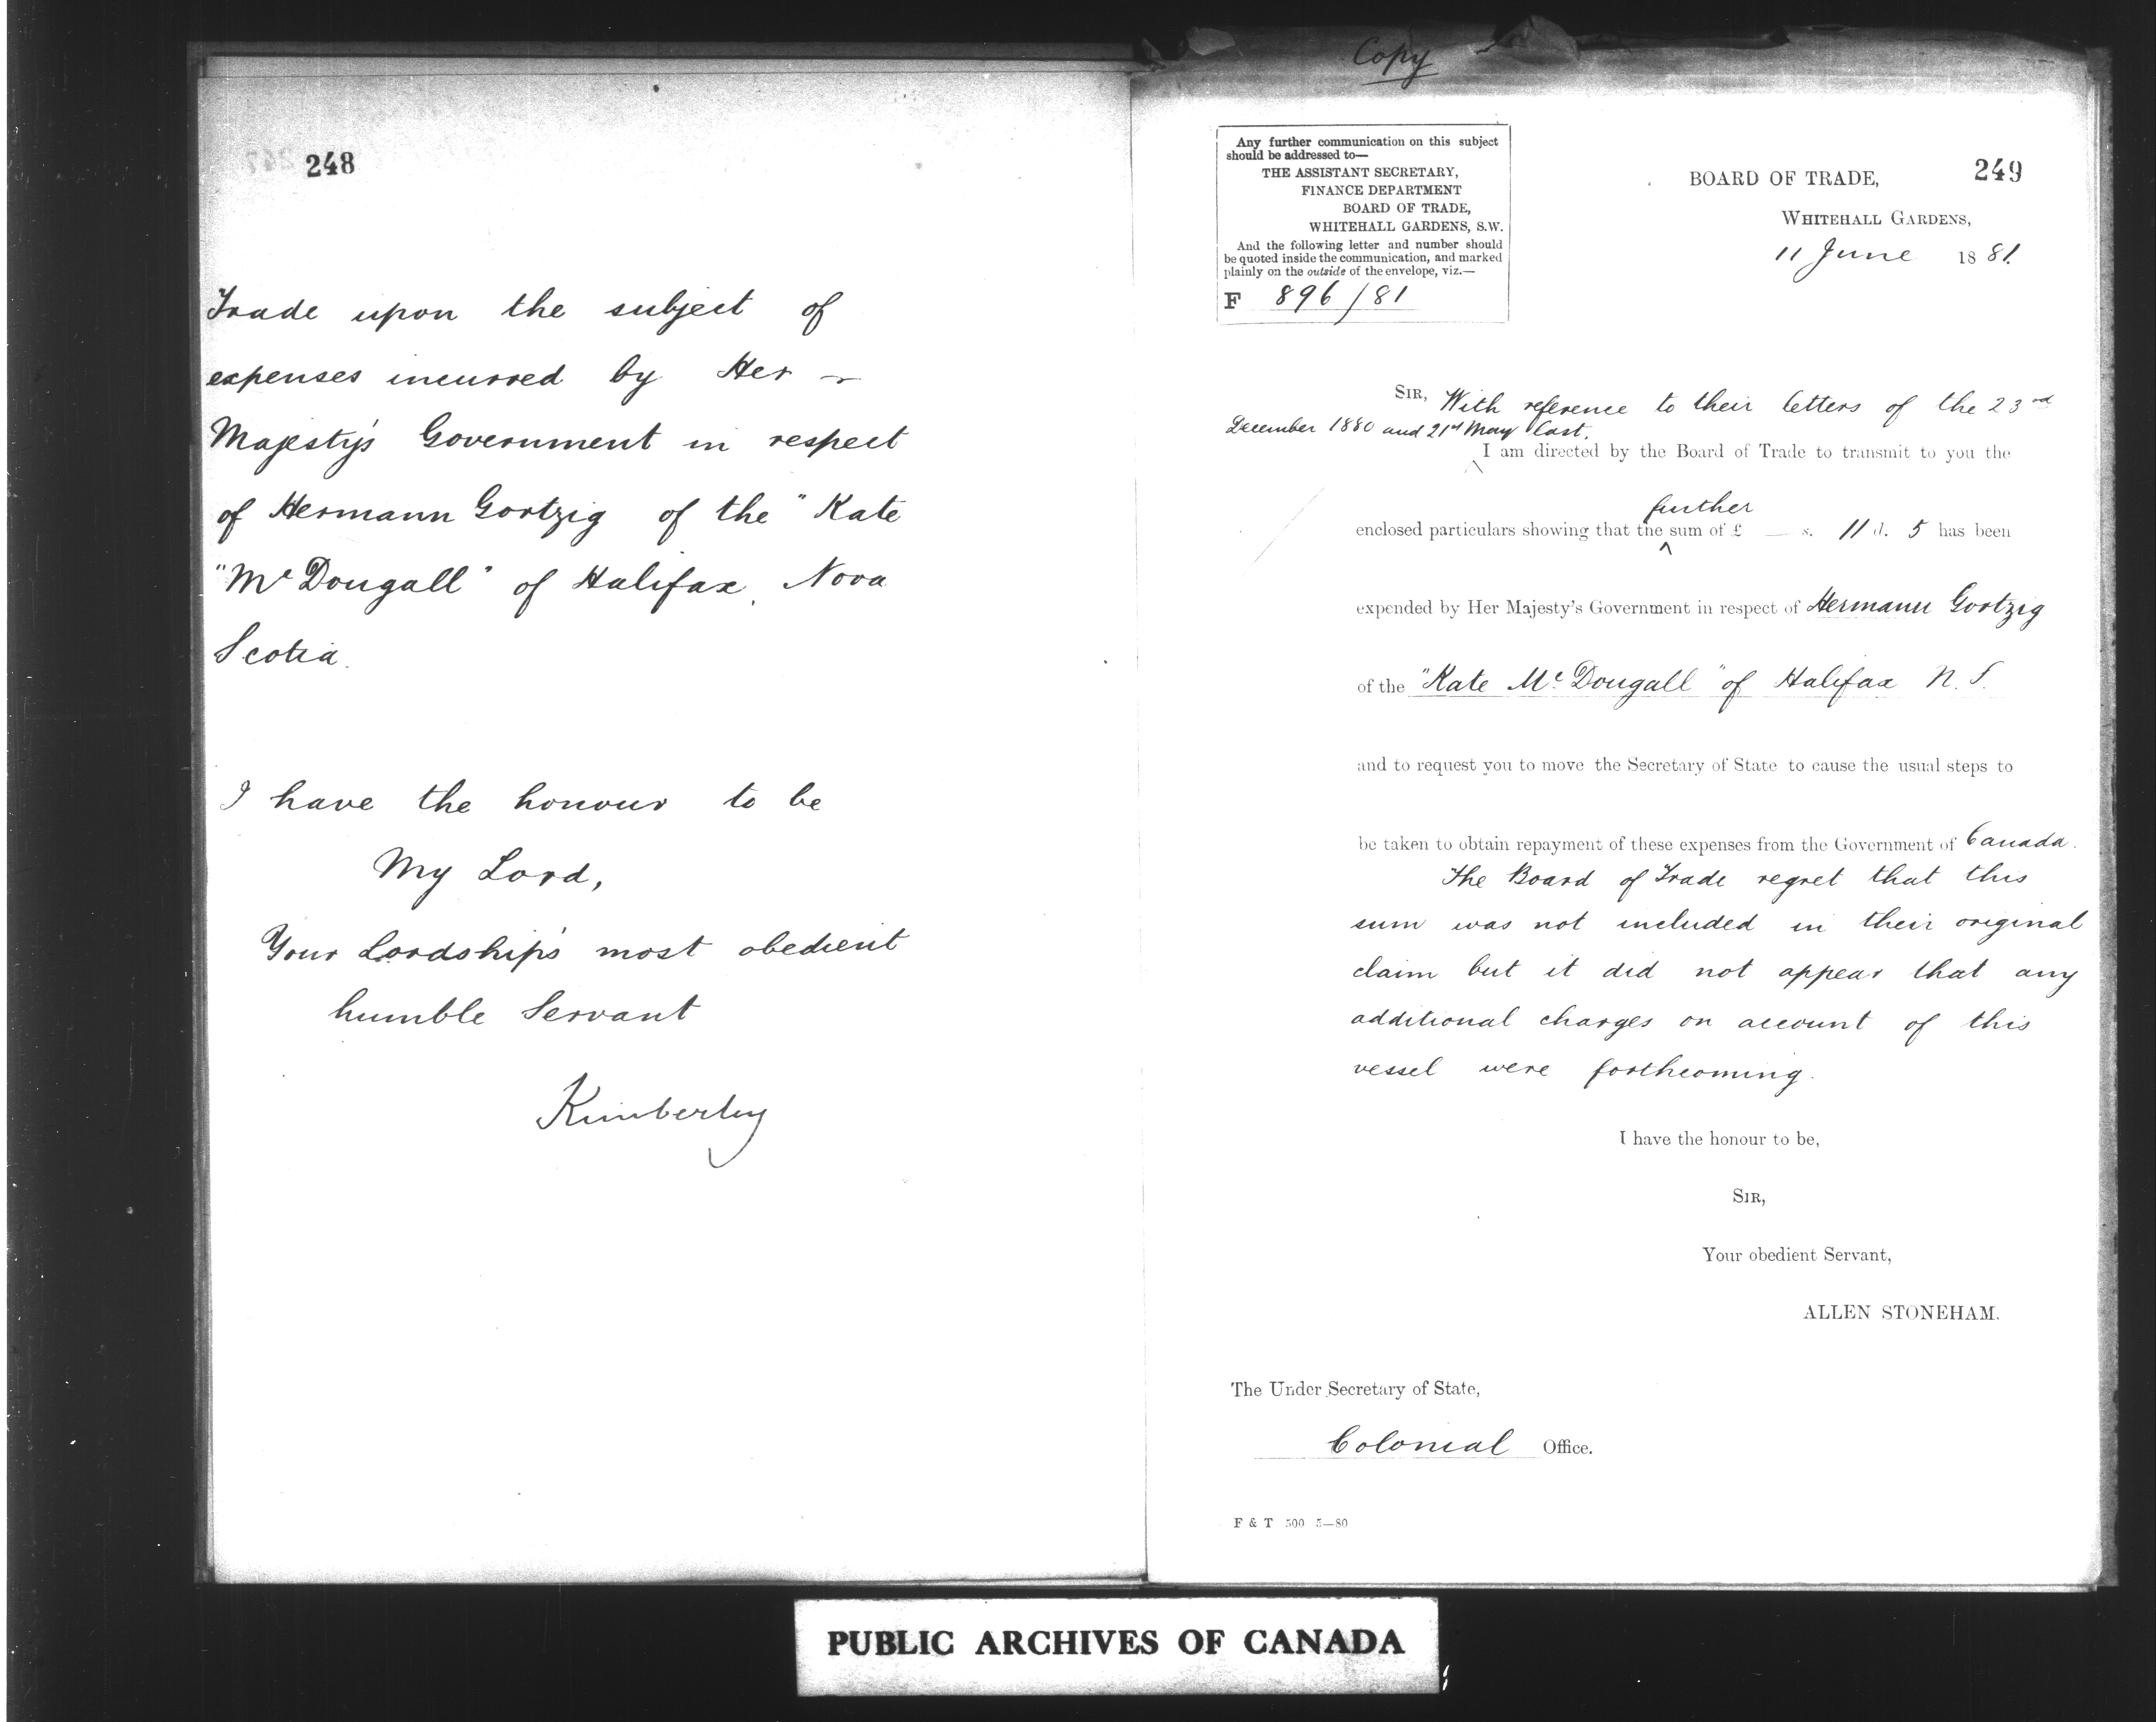 248
Trade upon the subject of
expenses incurred by Her
Majesty's Government in respect
of Hermann Gortzig of the "Kate
"Mc Dougall" of Halifax, Nova
Scotia.
I have the honour to be
My Lord,
Your Lordship's most obedient
humble Servant
Kimberley
Copy
Any further communication on this subject
should be addressed to—
THE ASSISTANT SECRETARY,
FINANCE DEPARTMENT
BOARD OF TRADE,
WHITEHALL GARDENS, S.W.
And the following letter and number should
be quoted inside the communication, and marked
plainly on the outside of the envelope, viz.—
F 896/81
249
BOARD OF TRADE,
WHITEHALL GARDENS,
11 June 1881.
SIR, With reference to their letters of the 23rd
December 1880 and 21st May last,
I am directed by the Board of Trade to transmit to you the
further
enclosed particulars showing that the sum of £ — s. 11 d. 5 has been
expended by Her Majesty's Government in respect of Hermann Gortzig
of the "Kate Mc Dougall" of Halifax N. S.
and to request you to move the Secretary of State to cause the usual steps to
be taken to obtain repayment of these expenses from the Government of Canada.
The Board of Trade regret that this
sum was not included in their original
claim but it did not appear that any
additional charges on account of this
vessel were forthcoming.
I have the honour to be,
SIR,
Your obedient Servant,
ALLEN STONEHAM.
The Under Secretary of State,
Colonial Office.
F & T 500 5—80
PUBLIC ARCHIVES OF CANADA